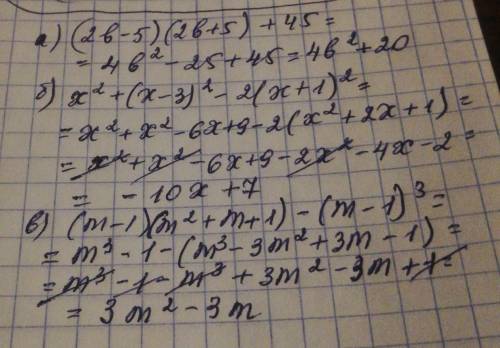 а) (2в-5)(2в+5) +45=
= 4в²-25+45=4в²+20
б) x²+(x-3)²-2(x+1)²=
=x²+x²-6x+9-2(x²+2x+1)=
=x²+x²-6x+9-2x²-4x-2=
= -10x+7
в) (m-1)(m²+m+1)-(m-1)³=
=m³-1-(m³-3m²+3m-1)=
=m³-1-m³+3m²-3m+1=
=3m²-3m